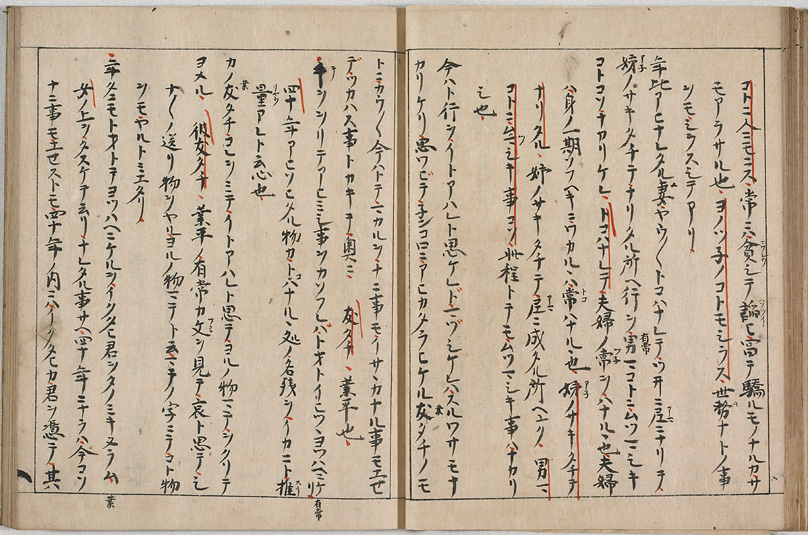 コト人ニモニス常ニ貧シテ諂ヒ富テ驕ルモノナルカサ
モアラサル也ヨノツ子ノコトモシラス世務ナトノ事
ンモシラスシテアリ
年比アヒナレタル妻ヤウ〳〵トコハナレテツ井ニ尼ニナリテ
姉ノサキタチテナリタル所ヘ行ヲ男有常コトニムツマシキ
コトコソナカリケレトコハナレヲ夫婦ノ常ヲハナルヽ也夫婦
ハ身ノ一期ソフヘキヨウカルヽハ常ハナル也姉サキタチテ
ナリタル姉ノサキタチテ尼ニ成タル所ヘユク男マ
コトニムツマシキ事コソ此程トテモムツマシキ事ハナカリ
シ也
今ハト行ヲイトアハレト思ケレト貧シケレハスルワサモナ
カリケリ思ワヒテ子ンコロニアヒカタラヒケル友タチノモ
トニカウ〳〵今ハトテマカルヲナニ事モイサヽカナル事モエセ
テツカハス事トカキテ奥ニ 友タチ 業平也
手ヲヲリテアヒミシ事ヲカソフレハトオトイヒツヽヨツハヘニケリ 有常
四十年アヒソヒタル物カトハナルヽ処ノ名残ヲイカニト推
量アレト云心也
カノ友タチコレヲミテイトアハレト思テヨル物マテヲクリテ
ヨメル 彼友タチ 業平ノ有常カ文ヲ見テ哀ト思テシ
ナ〳〵ノ送リ物ヲヤルヨルノ物マテト云マテノ字ニテコト物
ンモヤルトミエタリ
年タニモトオトテヨツハヘニケルヲイクタヒ君ヲタノミキヌラム 業
女ノ上ヲタスケテ云リナレタル事サヘ四十年ニナラハ今コソ
ナニ事モエセストモ四十年ノ内ニハイクタヒカ君ヲ憑テ其